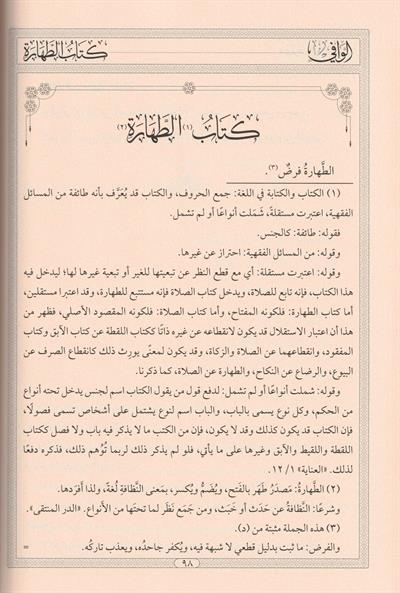 الوافي
كتاب الطهارة
كتاب (١) الطهارة (٢)
الطَّهارةُ فرضٌ (٣).
(١) الكتاب والكتابة في اللغة: جمع الحروف، والكتاب قد يُعَرَّف بأنه طائفة من المسائل
الفقهية، اعتبرت مستقلةً، شَملت أنواعًا أو لم تشمل.
فقوله: طائفة: كالجنس.
وقوله: من المسائل الفقهية: احتراز عن غيرها.
وقوله: اعتبرت مستقلة: أي مع قطع النظر عن تبعيتها للغير أو تبعية غيرها لها؛ ليدخل فيه
هذا الكتاب، فإنه تابع للصلاة، ويدخل كتاب الصلاة فإنه مستتبع للطهارة، وقد اعتبرا مستقلين،
أما كتاب الطهارة: فلكونه المفتاح، وأما كتاب الصلاة: فلكونه المقصود الأصلي، فظهر من
هذا أن اعتبار الاستقلال قد يكون لانقطاعه عن غيره ذاتًا ككتاب اللقطة عن كتاب الآبق وكتاب
المفقود، وانقطاعهما عن الصلاة والزكاة، وقد يكون لمعنًى يورث ذلك كانقطاع الصرف عن
البيوع، والرضاع عن النكاح، والطهارة عن الصلاة، كما ذكرنا.
وقوله: شملت أنواعًا أو لم تشمل: لدفع قول من يقول الكتاب اسم لجنس يدخل تحته أنواع
من الحكم، وكل نوع يسمى بالباب، والباب اسم لنوع يشتمل على أشخاص تسمى فصولًا،
فإن الكتاب قد يكون كذلك وقد لا يكون، فإن من الكتب ما لا يذكر فيه باب ولا فصل ككتاب
اللقطة واللقيط والآبق وغيرها على ما يأتي، فلو لم يذكر ذلك لربما تُوُهم ذلك، فذكره دفعًا
لذلك. «العناية» ١٢/١.
(٢) الطَّهارةُ: مَصدَرُ طَهر بالفَتح، ويُضَمُّ ويُكسر، بمعنى النَّظافةِ لُغةً، ولذا أفرَدها.
وشرعًا: النَّظافةُ عن حَدَث أو خَبَث، ومن جَمَع نَظَر لما تحتَها من الأنواع. «الدر المنتقى».
(٣) هذه الجملة مثبتة من (د).
والفرض: ما ثبت بدليل قطعي لا شبهة فيه، ويُكفر جاحدُه، ويعذب تاركُه. =
٩٨